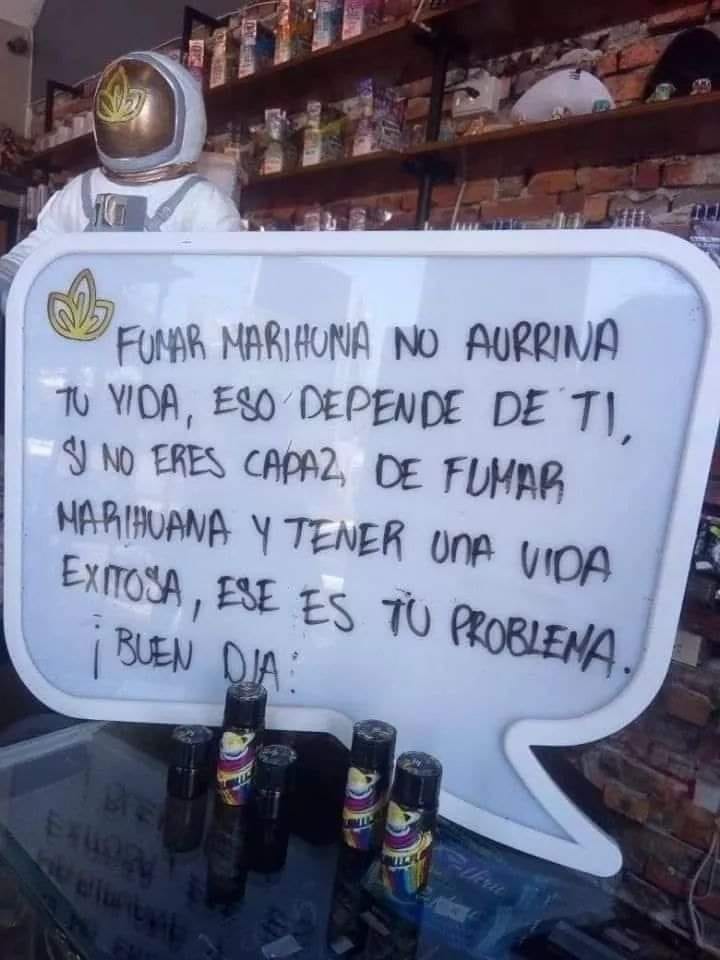 FUMAR MARIHUNA NO AURRINA
TU VIDA, ESO DEPENDE DE TI,
SI NO ERES CAPAZ, DE FUMAR
MARIHUANA Y TENER UNA VIDA
EXITOSA, ESE ES TU PROBLEMA.
¡BUEN DIA!